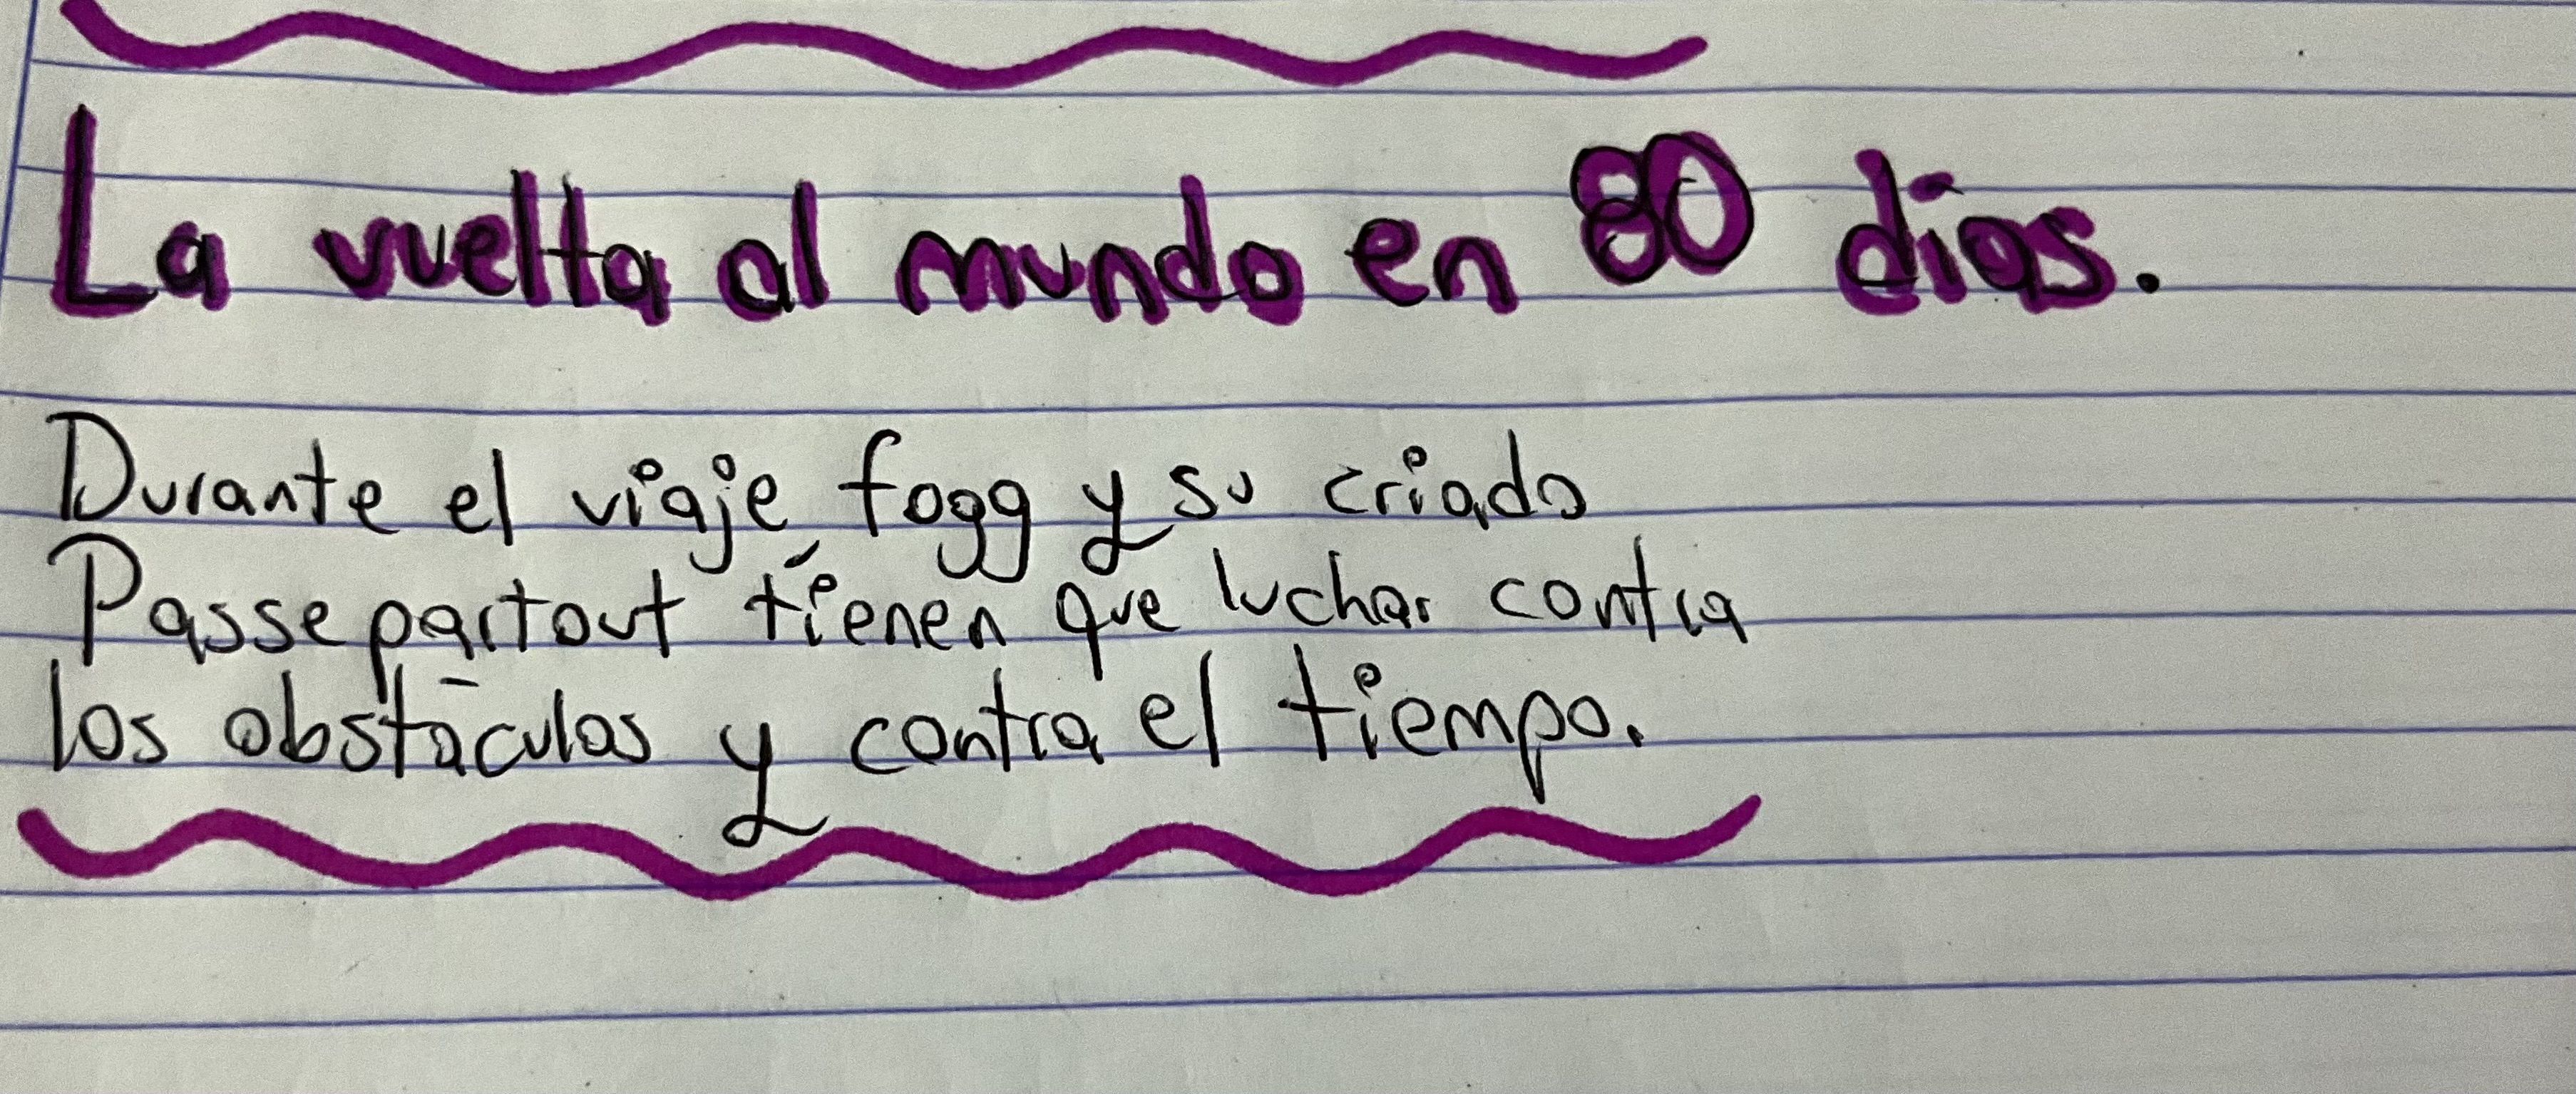 La vuelta al mundo en 80 días.
Durante el viaje fogg y su criado
Passepartout tienen que luchar contra
los obstáculos y contra el tiempo.